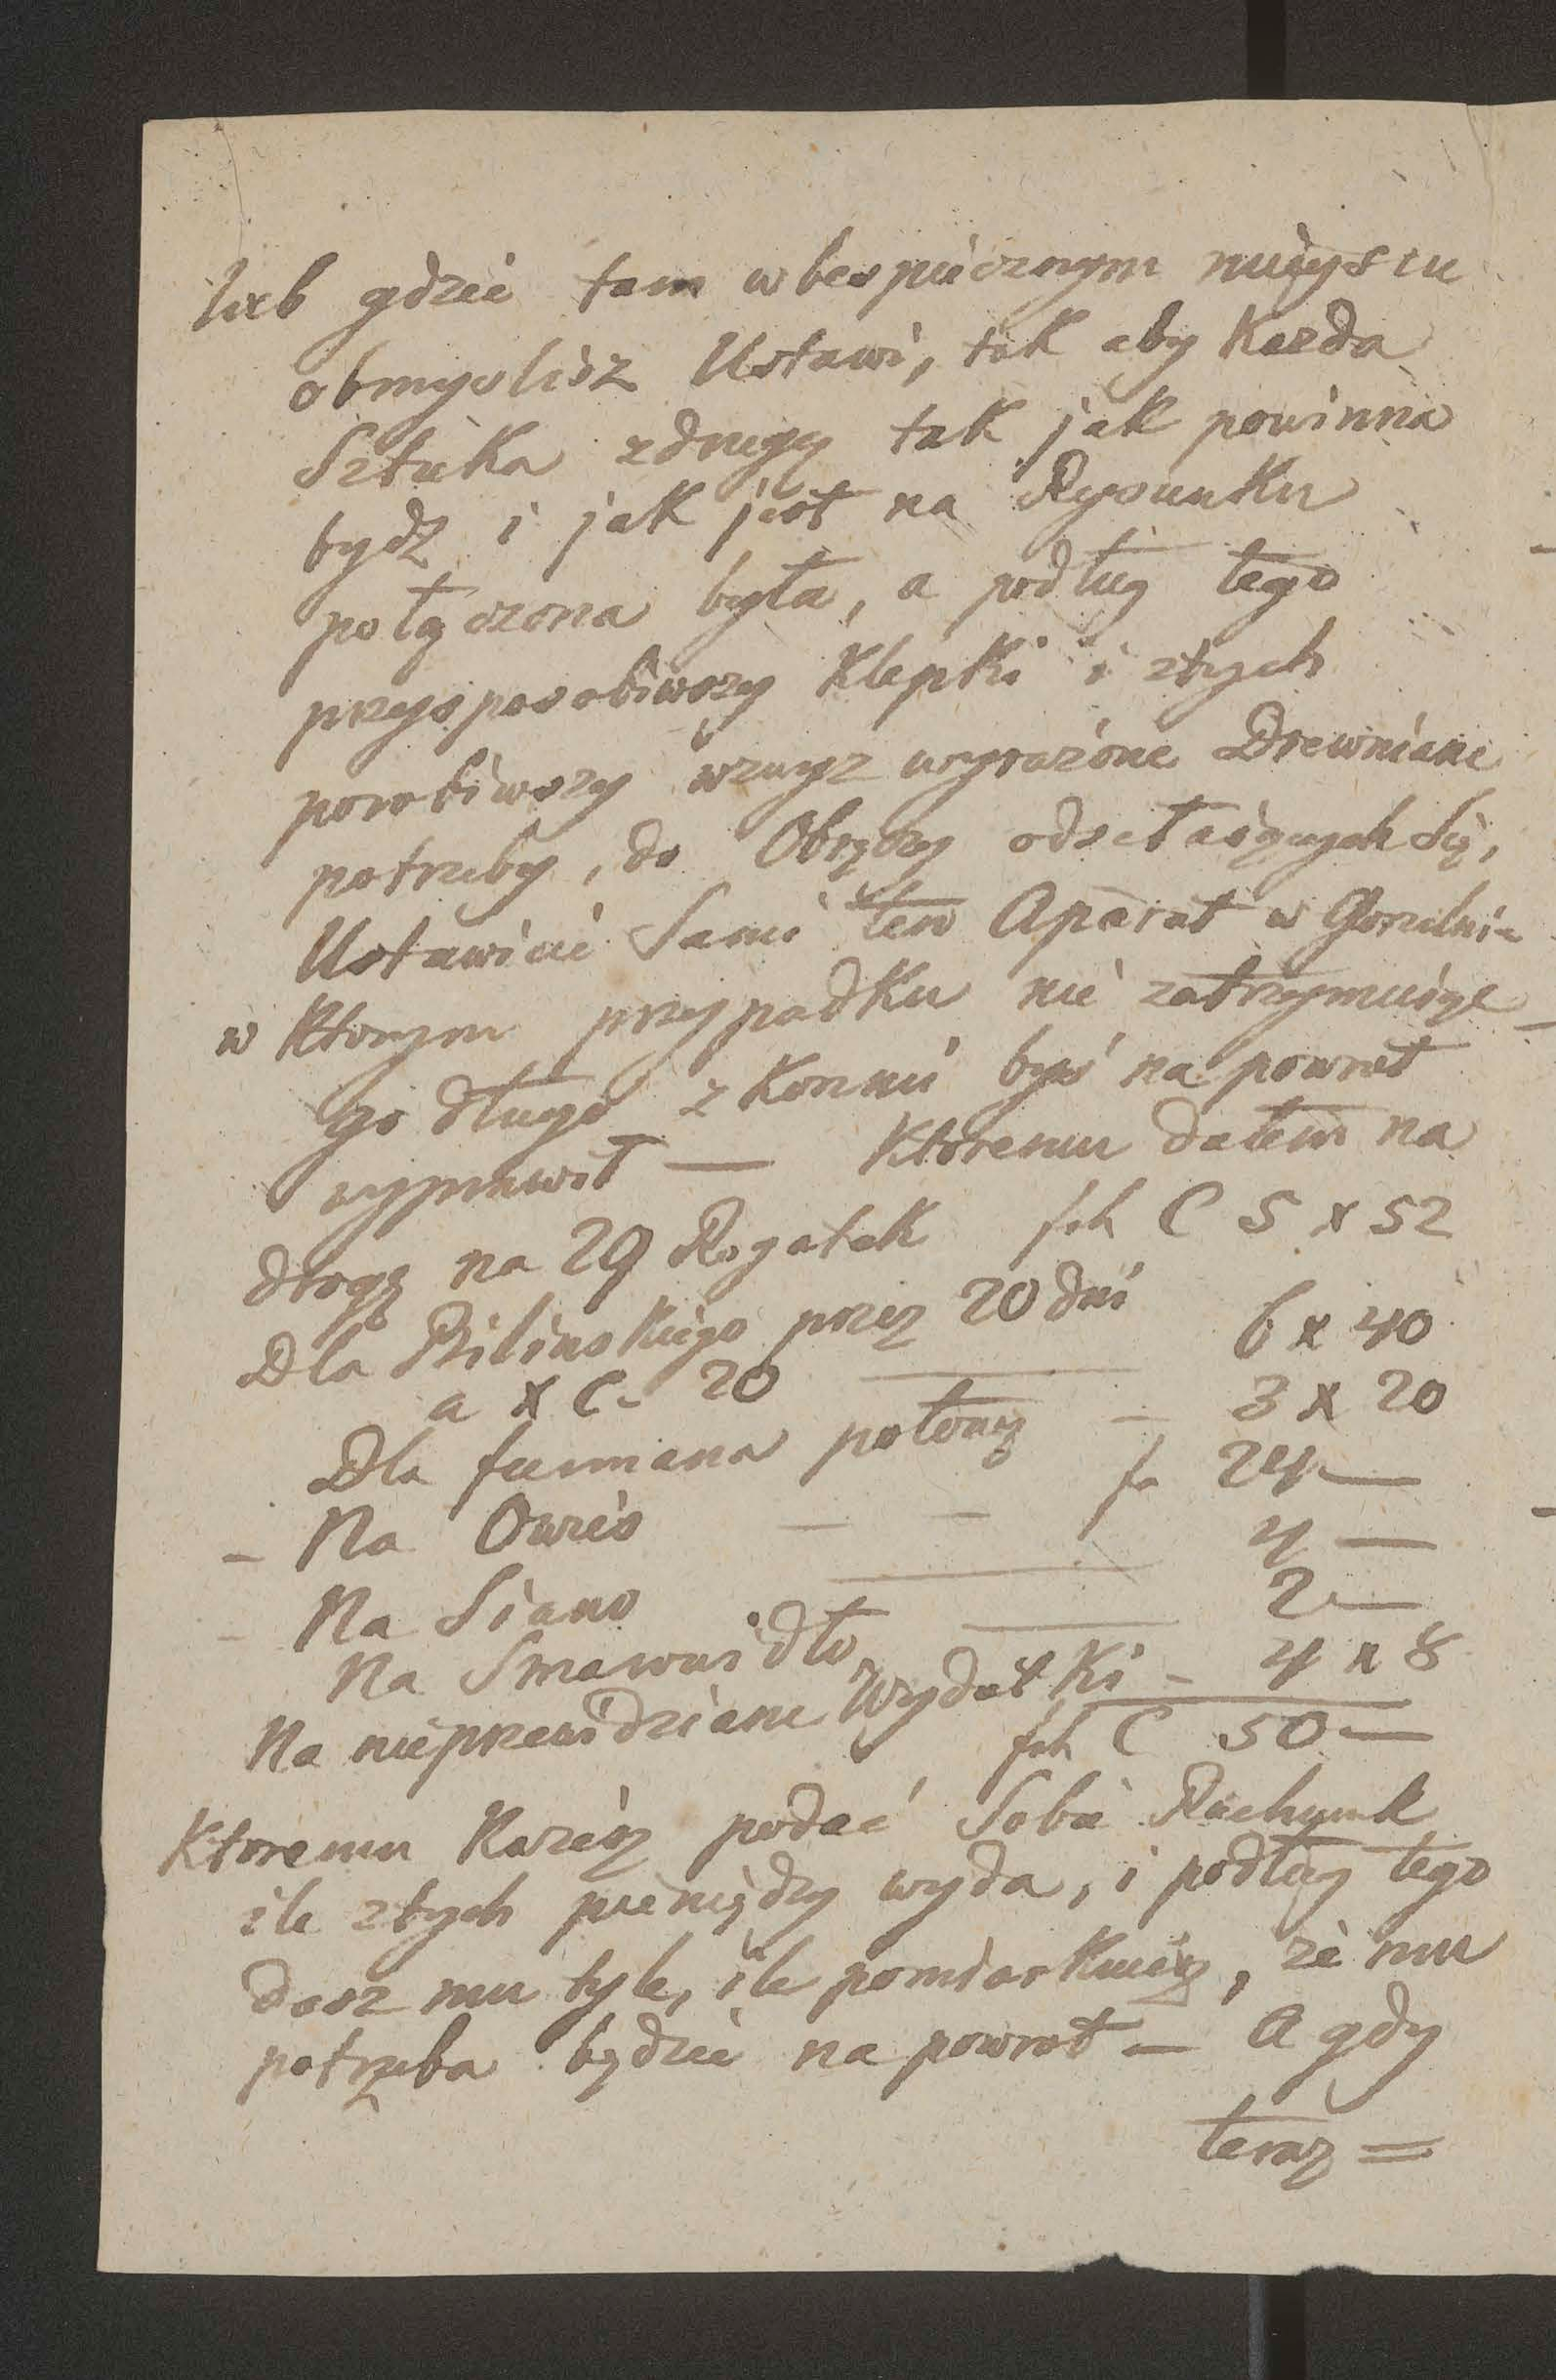 lub gdzie tam w bespiecznym mieyscu
obmyslisz Ustawi, tak aby Kazda
Sztuka zdrugą tak jak powinna
bydz i jak jest na Rysunku
połączona była, a podług tego
przysposobiwszy Klepki i ztych
porobiwszy wzwyz wyrazone Drewniane
potrzeby, do Obręczy odsełaiących Się,
Ustawicie Sami ten Aparat w Gorzelni
w Ktorym przypadku nie zatrzymuiąc
go długo z Konmi byś na powrot
wyprawił — Ktoremu dałem na
drogę na 29 Rogatek fch C 5 x 52
Dla Bilinskiego przez 20 dni
a x C - 20 — 6 x 40
Dla furmana połowę — 3 x 20
- Na Owies — — fr 24 —
- Na Siano — 4 —
Na Smarowidło — 2 —
Na nieprzewidziane Wydatki - 4 x 8
fch C 50 —
Ktoremu Kazesz podać Sobie Rachunk
ile ztych pieniędzy wyda, i podług tego
dasz mu tyle, ile pomiarkuiesz, ze mu
potrzeba będzie na powrot — A gdy
teraz =